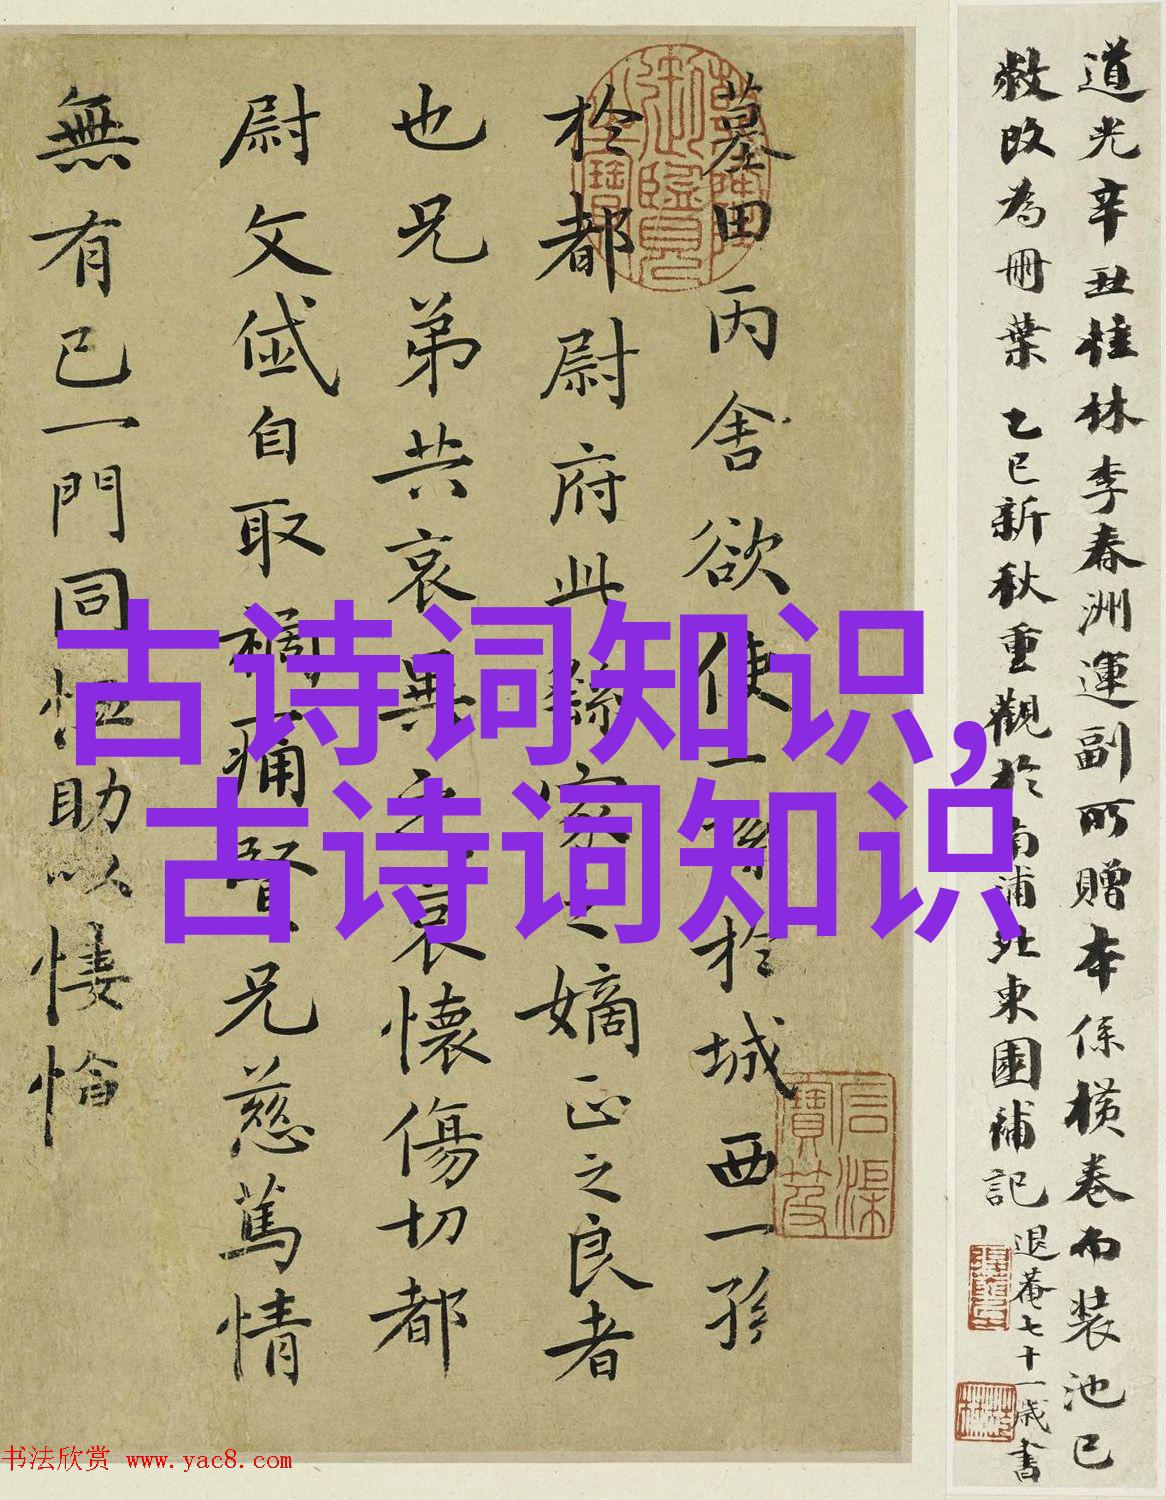 道光辛丑桂林李春洲運副所贈本係横卷而装池已
敝改為冊葉 乙巳新秋重觀於南浦北東園補記 退菴七十一歲書
墓田丙舍欲使一孫於城西一孫
於都尉府此繇家之嫡正之良者
也兄弟共哀異之哀懷傷切都
尉文岱自取禍痛賢兄慈篤情
無有已一門同恤助以悽愴
古诗词知识,
古诗词知识
书法欣赏 www.yac8.com